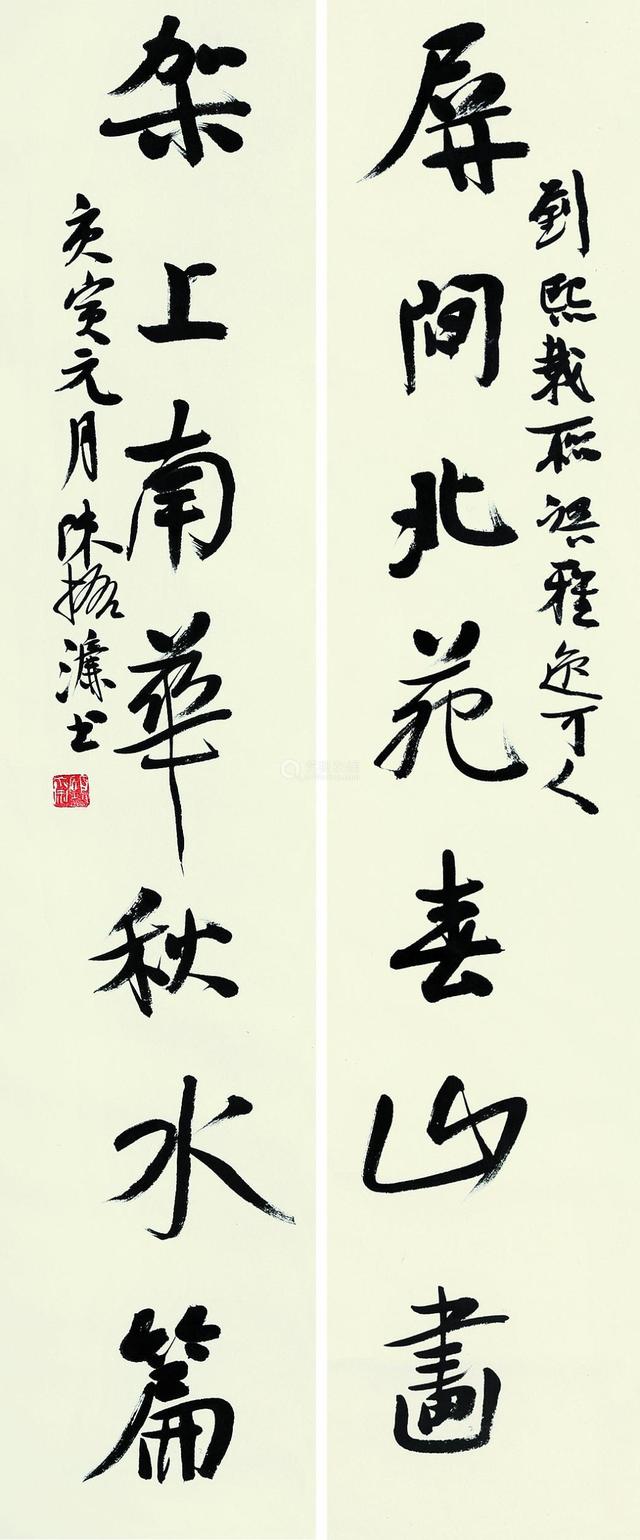 屏間北苑春山畫
劉熙載聯語雅逸可人
架上南華秋水篇
庚寅元月陳振濂書